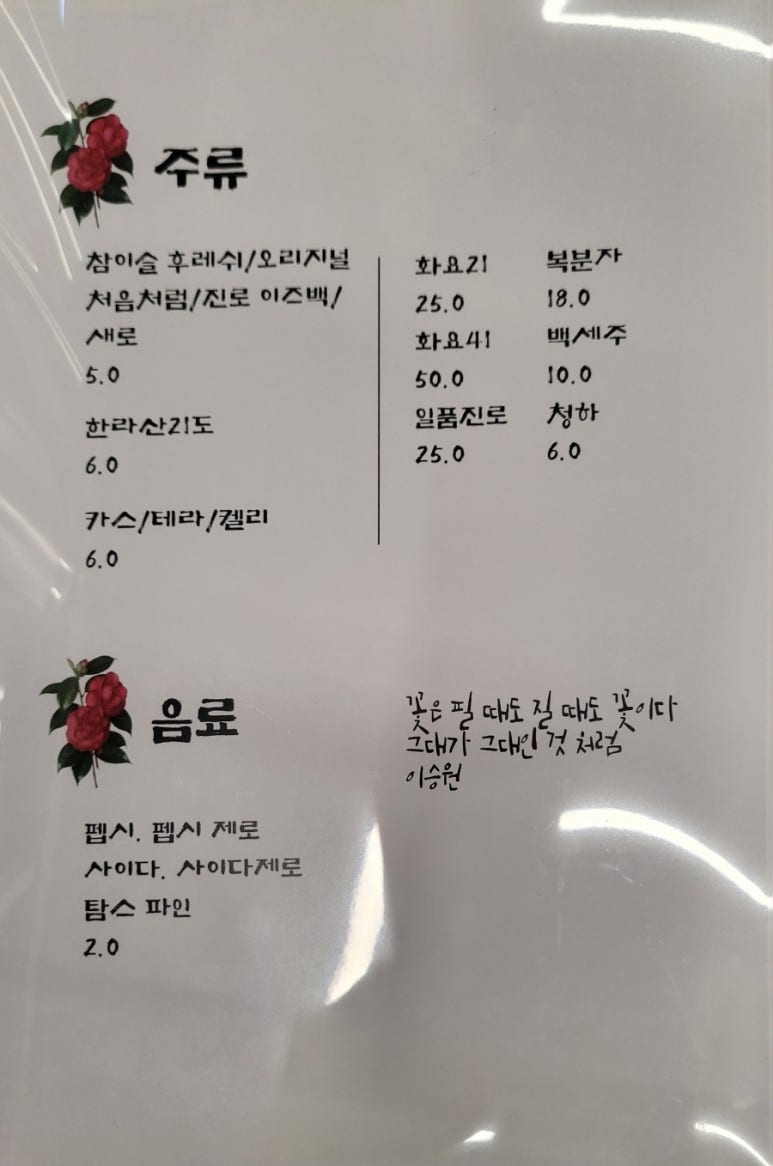 주류
참이슬 후레쉬/오리지널
처음처럼/진로 이즈백/
새로
5.0
한라산21도
6.0
카스/테라/켈리
6.0
화요21
25.0
화요41
50.0
일품진로
25.0
복분자
18.0
백세주
10.0
청하
6.0
음료
펩시. 펩시 제로
사이다. 사이다제로
탐스 파인
2.0
꽃은 필 때도 질 때도 꽃이다
그대가 그대인 것 처럼
이승원